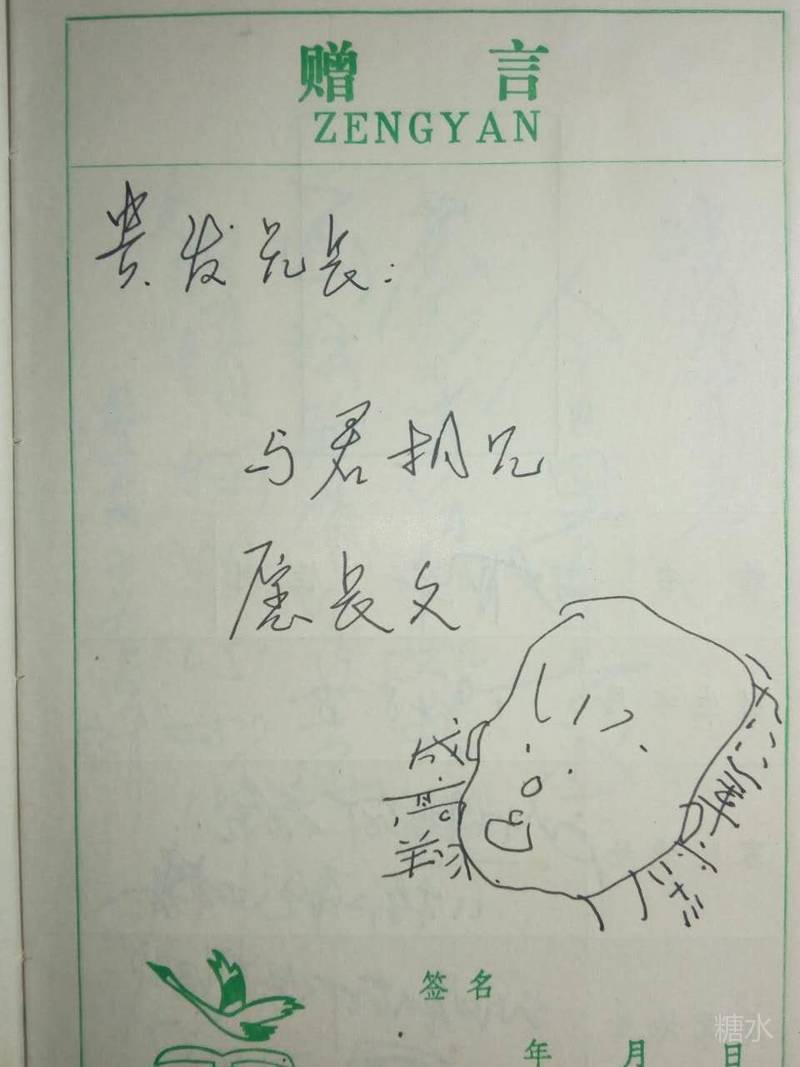 赠言
ZENGYAN
贵发兄长:
与君相见
愿长久
签名
年 月 日
糖水